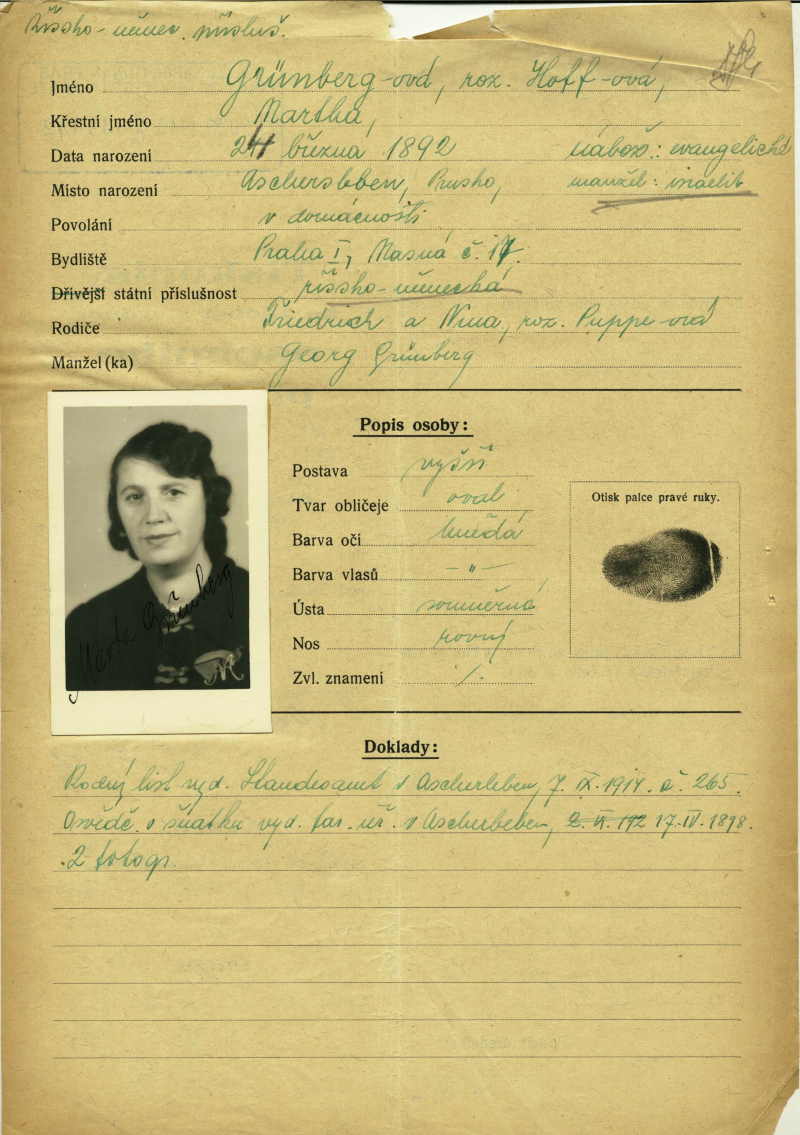 Říšsko-němec. přísluš.
Jméno Grünberg-ová, roz. Hoff-ová,
Křestní jméno Martha,
Data narození 24 března 1892 nábož.: evangelické
Místo narození Aschersleben, Prusko, manžel: israelit
Povolání v domácnosti,
Bydliště Praha I, Masná č. 17.
Dřívější státní příslušnost říšsko-německá
Rodiče Friedrich a Nina, roz. Puppe-ová
Manžel (ka) Georg Grünberg
Popis osoby:
Postava vyšší
Tvar obličeje oval,
Barva očí hnědá
Barva vlasů —"—
Ústa souměrná
Nos rovný
Zvl. znamení /.
Otisk palce pravé ruky.
Marta Grünberg
Doklady:
Rodný list vyd. Standesamt v Ascherleben, 7. IX. 1914. č. 265.
Osvědč. o sňatku vyd. far. úř. v Ascherleben, 17. IV. 1898.
2 fotogr.